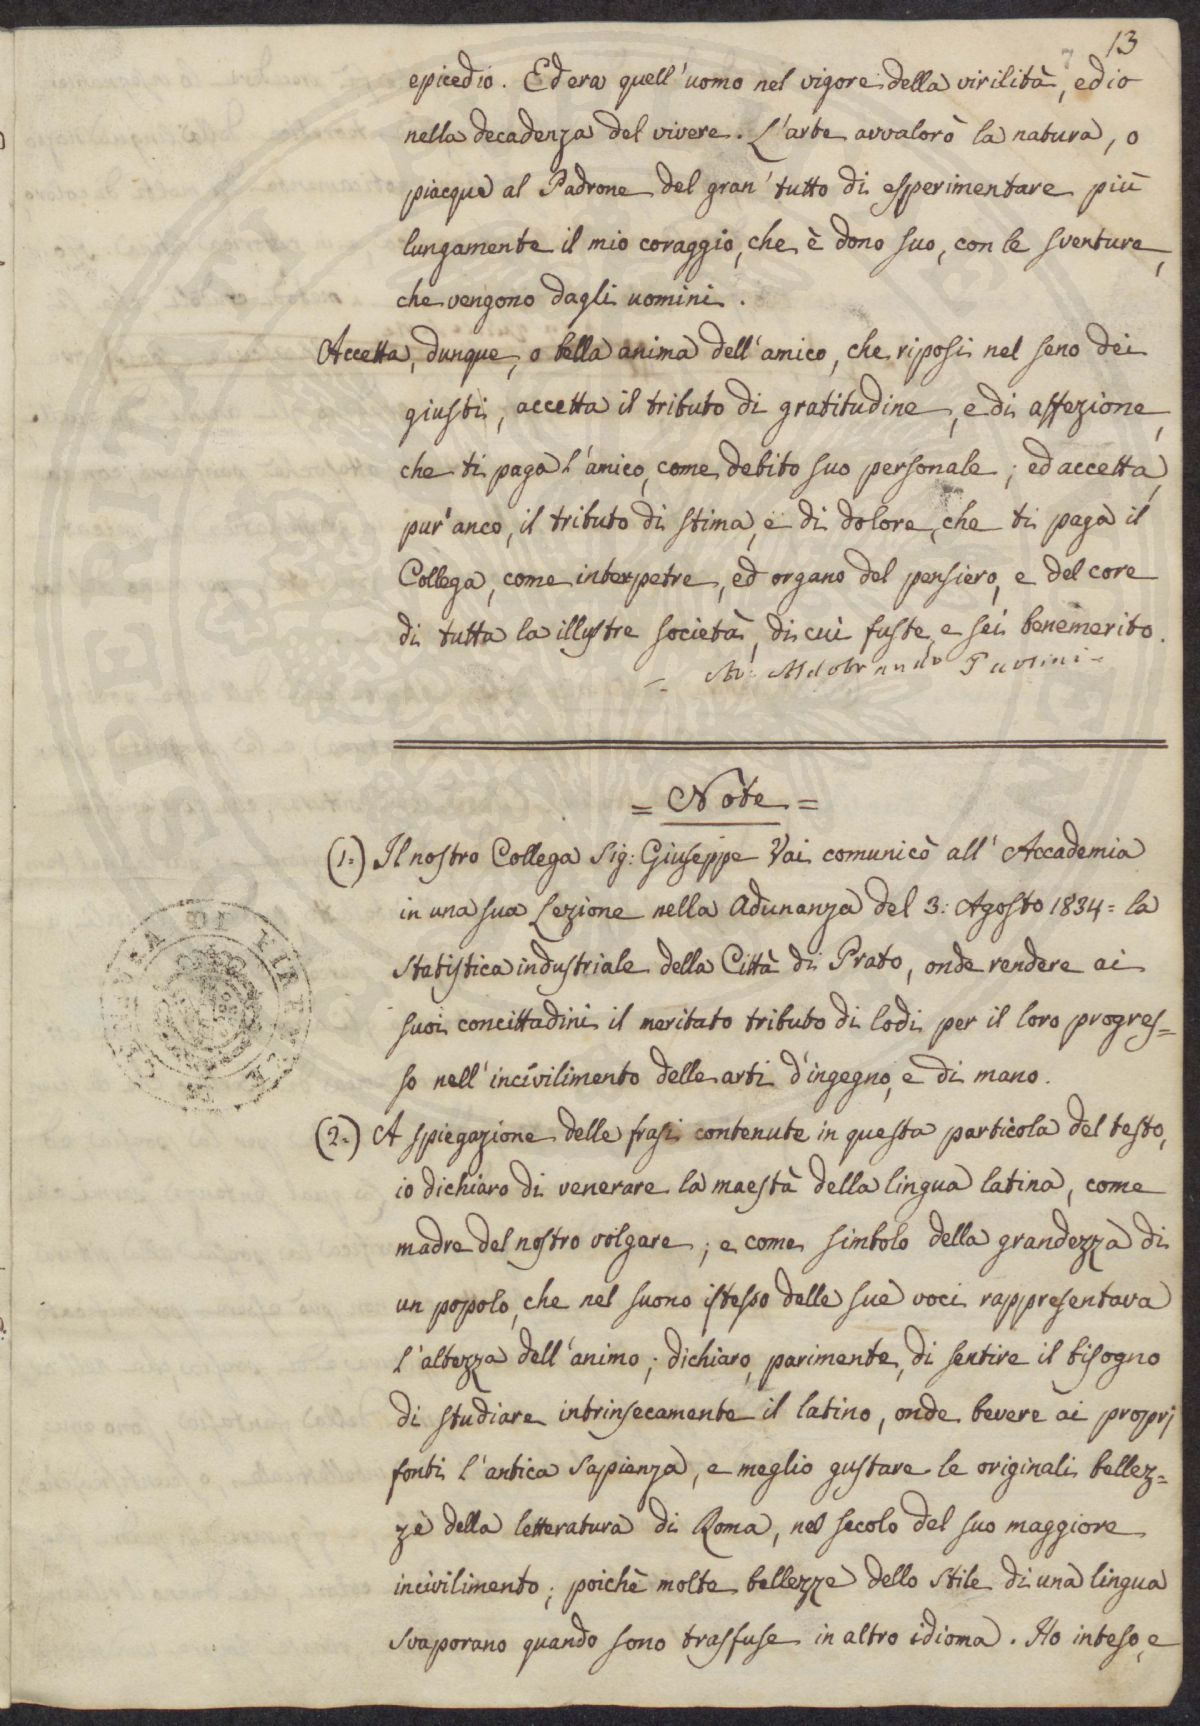 13
epicedio. Ed era quell'uomo nel vigore della virilità, ed io
nella decadenza del vivere. L'arte avvalorò la natura, o
piacque al Padrone del gran' tutto di esperimentare più
lungamente il mio coraggio, che è dono suo, con le sventure,
che vengono dagli uomini.
Accetta, dunque, o bella anima dell'amico, che riposi nel seno dei
giusti, accetta il tributo di gratitudine, e di affezione,
che ti paga l'amico, come debito suo personale; ed accetta,
pur'anco, il tributo di stima, e di dolore, che ti paga il
Collega, come interpetre, ed organo del pensiero, e del core
di tutta la illustre società, di cui fuste, e sei benemerito.
Aldobrando Paolini
= Note =
(1.) Il nostro Collega Sig: Giuseppe Vai comunicò all'Accademia
in una sua Lezione nella Adunanza del 3: Agosto 1834 = la
Statistica industriale della Città di Prato, onde rendere ai
suoi concittadini il meritato tributo di lodi per il loro progres=
so nell'incivilimento delle arti d'ingegno, e di mano.
(2.) A spiegazione delle frasi contenute in questa particola del testo,
io dichiaro di venerare la maestà della lingua latina, come
madre del nostro volgare; e come simbolo della grandezza di
un popolo, che nel suono istesso delle sue voci rappresentava
l'altezza dell'animo; dichiaro, parimente, di sentire il bisogno
di studiare intrinsecamente il latino, onde bevere ai proprj
fonti l'antica sapienza, e meglio gustare le originali bellez=
ze della letteratura di Roma, nel secolo del suo maggiore
incivilimento; poichè molte bellezze dello stile di una lingua
svaporano quando sono trasfuse in altro idioma. Ho inteso, e